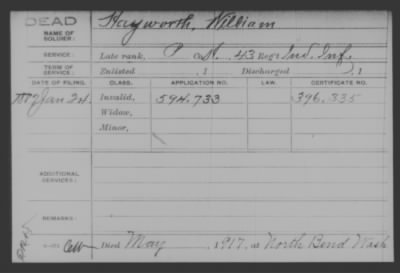 DEAD
NAME OF SOLDIER: Hayworth, William
SERVICE: Late rank, P Co. , 43 Reg't Ind. Inf.
TERM OF SERVICE: Enlisted , 1 Discharged , 1
DATE OF FILING. CLASS. APPLICATION NO. LAW. CERTIFICATE NO.
Jan 24. Invalid, 594.733 396.335
Widow,
Minor,
ADDITIONAL SERVICES:
REMARKS:
Died May , 1917, at North Bend Wash